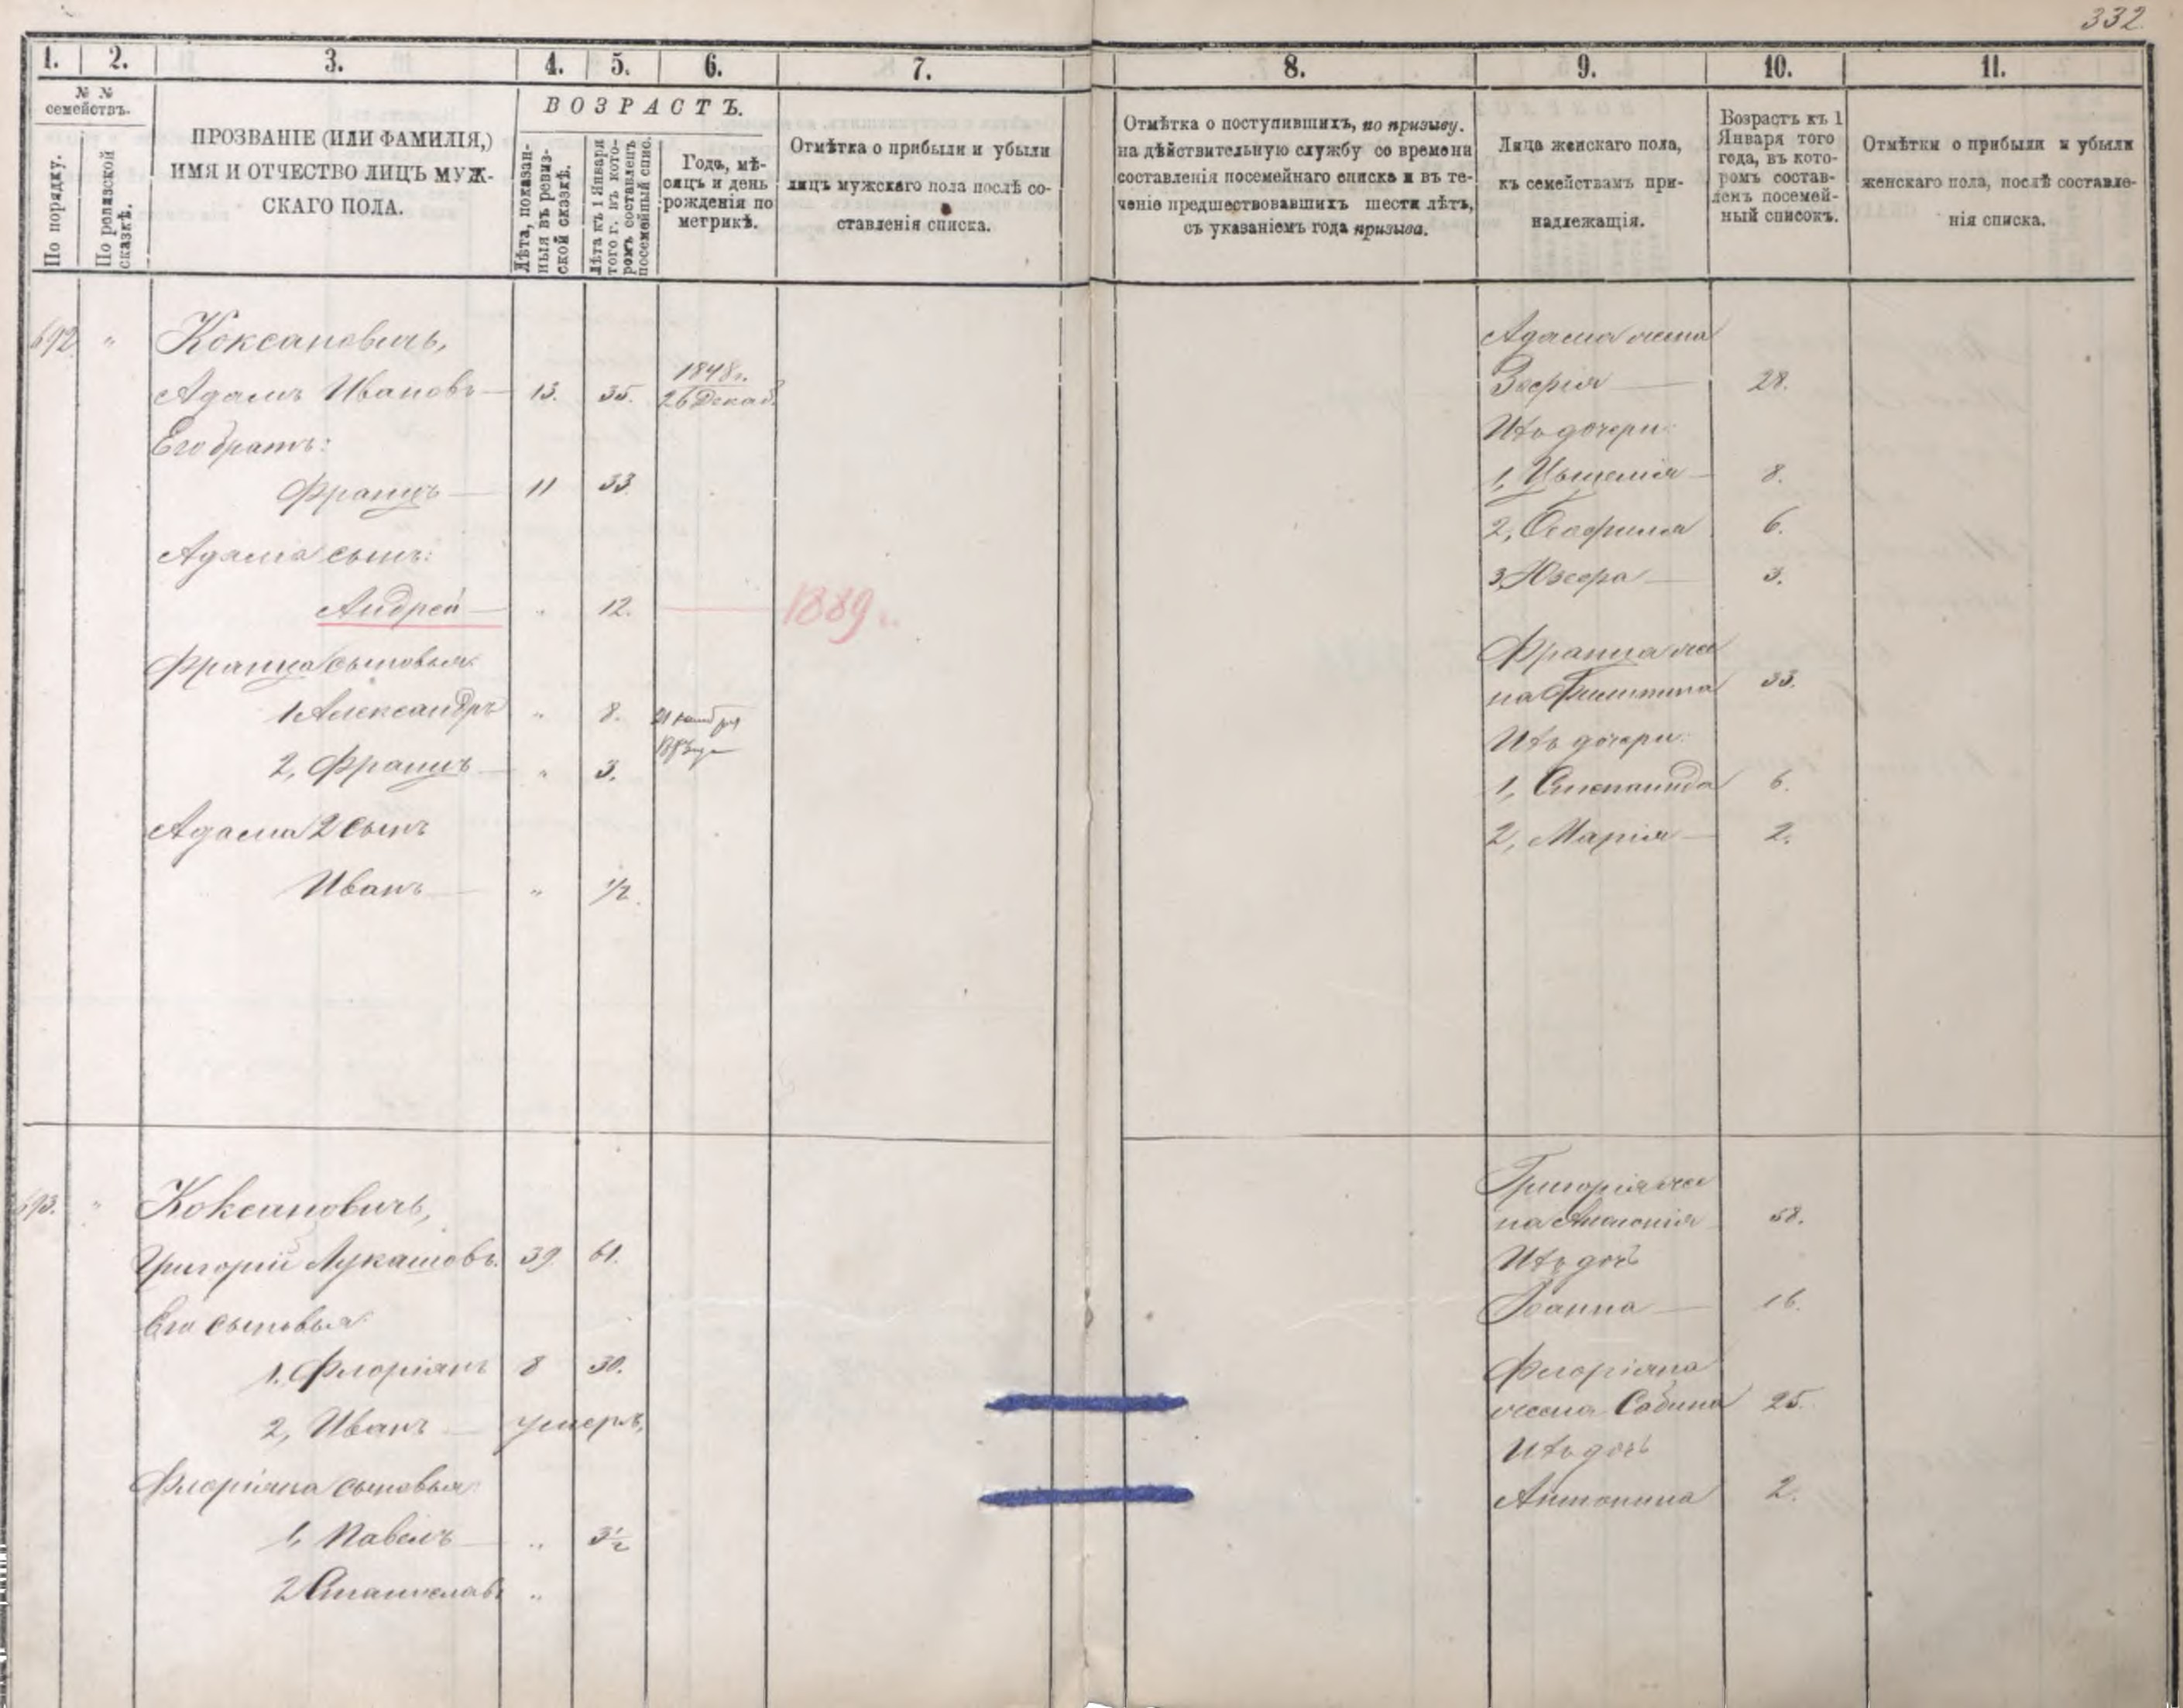 332.
1. 2. 3. 4. 5. 6. 7. 8. 9. 10. 11.
№ № семействъ.
По порядку.
По ревизской сказкѣ.
ПРОЗВАНІЕ (ИЛИ ФАМИЛІЯ,)
ИМЯ И ОТЧЕСТВО ЛИЦЪ МУЖ-
СКАГО ПОЛА.
ВОЗРАСТЪ.
Лѣта, показан-
ныя въ ревиз-
ской сказкѣ.
Лѣта къ 1 Января
того г. въ кото-
ромъ составленъ
посемейный спис.
Годъ, мѣ-
сяцъ и день
рожденія по
метрикѣ.
Отмѣтка о прибыли и убыли
лицъ мужскаго пола послѣ со-
ставленія списка.
Отмѣтка о поступившихъ, по призыву.
на дѣйствительную службу со времени
составленія посемейнаго списка и въ те-
ченіе предшествовавшихъ шести лѣтъ,
съ указаніемъ года призыва.
Лица женскаго пола,
къ семействамъ при-
надлежащія.
Возрастъ къ 1
Января того
года, въ кото-
ромъ состав-
ленъ посемей-
ный списокъ.
Отмѣтки о прибыли и убыли
женскаго пола, послѣ составле-
нія списка.
692. " Коксановичъ,
Адамъ Ивановъ 13. 35. 1848г.
26 Декаб.
Его братъ:
Францъ 11 33
Адама сынъ:
Андрей " 12. 1889
Франца сыновья:
1 Александръ " 8.
2, Францъ " 3.
Адама 2 сынъ
Иванъ " 1/2.
Адама жена
Зофія 28.
Ихъ дочери:
1, 8.
2, 6.
3, Юзефа 3.
Франца же
на 33.
Ихъ дочери:
1, Степанида 6.
2, Марія 2.
693. " Коксановичъ,
Григорій Лукашовъ. 39. 61.
Его сыновья
1, Флоріянъ 8 30.
2, Иванъ умеръ,
Флоріяна сыновья:
1, Павелъ " 3½
2 Станиславъ "
Григорія же
на Аполонія 58.
Ихъ дочь
Іоанна 16.
Флоріяна
жена Сабина 25.
Ихъ дочь
Антонина 2.